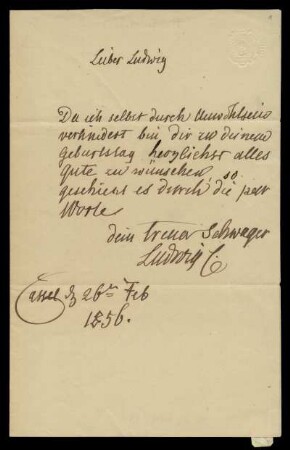 Lieber Ludwig
Da ich selbst durch Unwohlsein
verhindert bin, dir zu deinem
Geburtstag herzlichst alles
gute zu wünschen so
geschieht es durch die paar
Worte
dein treuer Schwager
Ludwig C.
Cassel d 26ten Feb
1856.